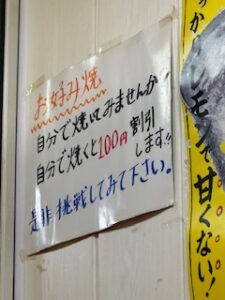 お好み焼
自分で焼いてみませんか
自分で焼くと100円割引
します!!
是非挑戦してみて下さい。
モンで甘くない!